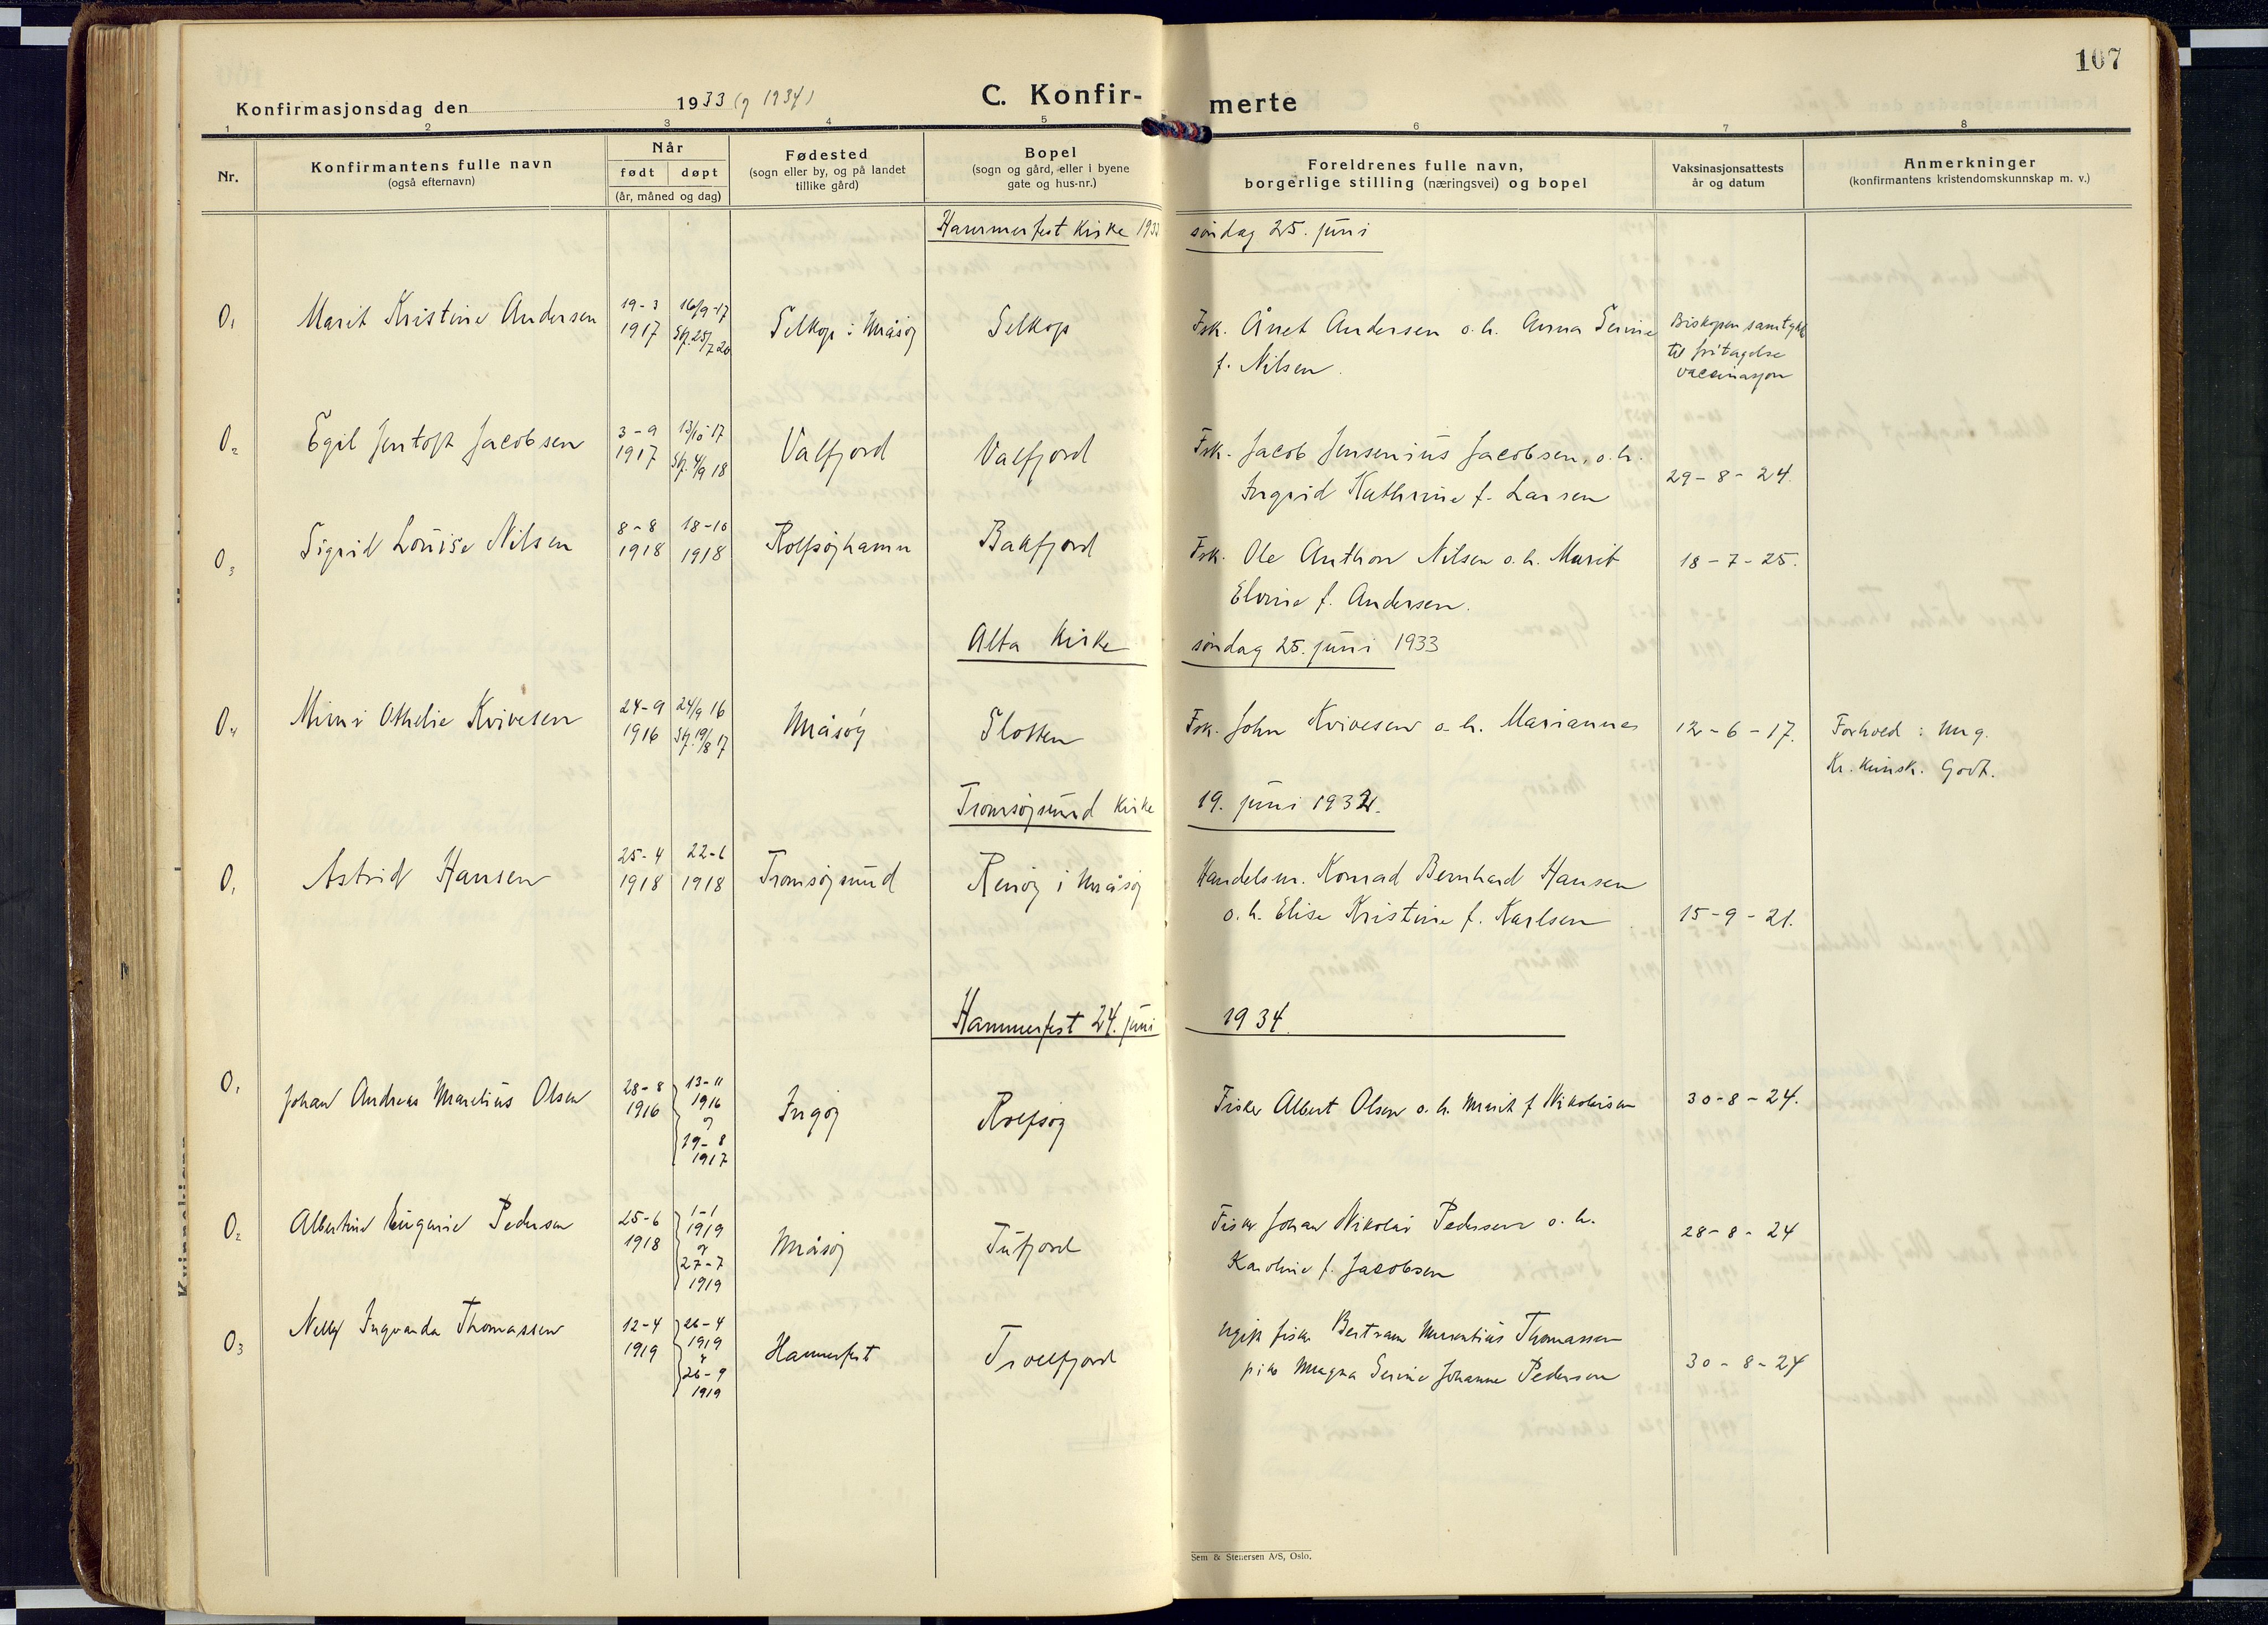 107
Konfirmasjonsdag den 1933 (og 1934)
C. Konfir- merte
1 2 3 4 5 6 7 8
Nr.
Konfirmantens fulle navn
(også efternavn)
Når
født døpt
(år, måned og dag)
Fødested
(sogn eller by, og på landet
tillike gård)
Bopel
(sogn og gård, eller i byene
gate og hus-nr.)
Foreldrenes fulle navn,
borgerlige stilling (næringsvei) og bopel
Vaksinasjonsattests
år og datum
Anmerkninger
(konfirmantens kristendomskunnskap m. v.)
Hammerfest Kirke 1933 søndag 25. juni
0, 1 Marit Kristine Andersen
19-3 1917
16/9-17 Stf. 25/7 20
Selkop i Måsøy
Selkop
Fsk. Ånet Andersen o. h. Anna Serine
f. Nilsen.
Biskopen samtykke
til fritagelse
vaccinasjon
0 2 Egil Jentoft Jacobsen
3-9 1917
13/10 17 Stf. 4/9 18
Valfjord
Valfjord
Fsk. Jacob Jensenius Jacobsen, o. h.
Ingrid Kathrine f. Larsen
29-8-24.
0 3 Sigrid Louise Nilsen
8-8 1918
18-10 1918
Rolfsøyhamn
Bakfjord
Fsk. Ole Anthon Nilsen o. h. Marit
Elvine f. Andersen.
18-7-25.
Alta Kirke søndag 25. juni 1933
0 4 Mimi Othelie Kvivesen
24-9 1916
24/9 16 Stf. 19/8 17
Måsøy
Slotten
Fsk. John Kvivesen o. h. Marianna
12-6-17.
Forhold: Mg.
Kr. kunsk. Godt.
Tromsøysund Kirke 19. juni 1932.
0 1 Astrid Hansen
25-4 1918
22-6 1918
Tromsøysund
Renøy i Måsøy
Handelsm. Konrad Bernhard Hansen
o. h. Elise Kristine f. Karlsen
15-9-21.
Hammerfest 24. juni 1934.
0 1 Johan Andreas Marelius Olsen
28-8 1916
13-11 1916 og 19-8 1917
Ingøy
Rolfsøy
Fisker Albert Olsen o. h. Marit f Nikolaisen
30-8-24.
0 2 Albertine Eugenie Pedersen
25-6 1918
1-1 1919 og 27-7 1919
Måsøy
Tufjord
Fisker Johan Nikolai Pedersen o. h.
Karoline f. Jacobsen
28-8-24
0 3 Nelly Ingvarda Thomassen
12-4 1919
26-4 1919 og 26-9 1919
Hammerfest
Trollfjord
ugift fisker Bertram Marentius Thomassen
pike Magna Serine Johanne Pedersen
30-8-24
Sem & Stenersen A/S, Oslo.